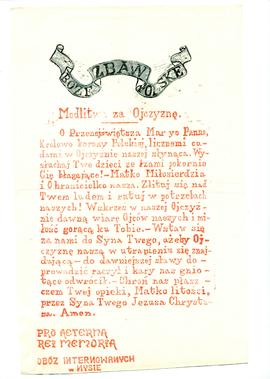 BOŻE ZBAW POLSKĘ
Modlitwa za Ojczyznę.
O Przenajświętsza Maryo Panno,
Królowo korony Polskiej, licznemi cu-
dami w Ojczyźnie naszej słynąca, Wy-
słuchaj Twe dzieci ze łzami pokornie
Cię błagające! – Matko Miłosierdzia
i Ochranicielko nasza. Zlituj się nad
Twem ludem i ratuj w potrzebach
naszych! Wskrzesz w naszej Ojczyź-
nie dawną wiarę Ojców naszych i mi-
łość gorącą ku Tobie. – Wstaw się
za nami do Syna Twego, ażeby Oj-
czyznę naszą w utrapieniu się znaj-
dującą – do dawniejszej sławy do-
prowadzić raczył i kary nas gnio-
tące odwrócił. – Chroń nas płasz-
czem Twej opieki, Matko litości,
przez Syna Twego Jezusa Chryst-
sa. Amen.
PRO AETERNA
REI MEMORIA
OBÓZ INTERNOWANYCH
w NYSIE